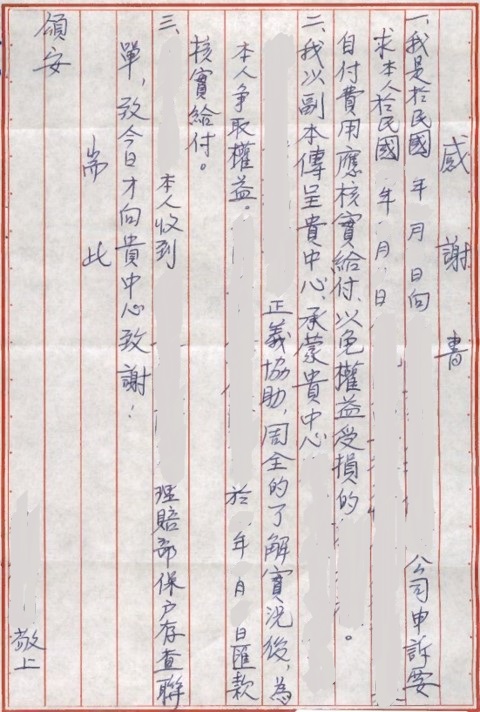 感謝書
一、我是於民國 年 月 日向 公司申訴要
求本人於民國 年 月 日
自付費用應核實給付、以免權益受損的 。
二、我以副本傳呈貴中心、承蒙貴中心
正義協助，周全的了解實況後，為
本人爭取權益。 於 年 月 日匯款
核實給付。
三、 本人收到 理賠部保戶存查聯
單，致今日才向貴中心致謝！
耑此
頌安
敬上